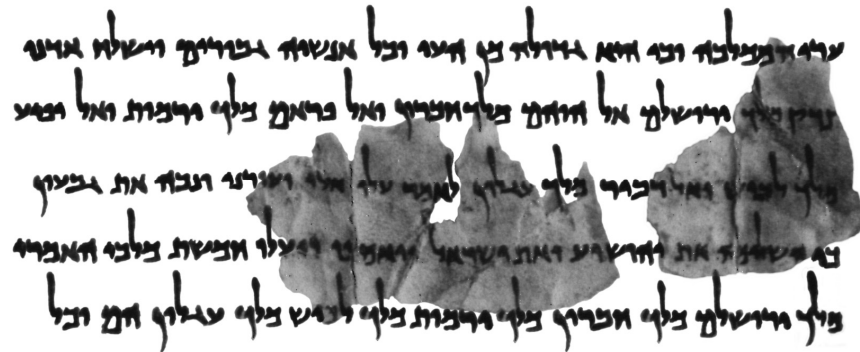 ערי הממלכה וכי היא גדולה מן העי וכל אנשיה גבורים וישלח אדני
צדק מלך ירושלם אל הוהם מלך חברון ואל פראם מלך ירמות ואל יפיע
מלך לכיש ואל דביר מלך עגלון לאמר עלו אלי ועזרני ונכה את גבעון
כי השלמה את יהושע ואת ישראל ויאספו ויעלו חמשת מלכי האמרי
מלך ירושלם מלך חברון מלך ירמות מלך לכיש מלך עגלון הם וכל